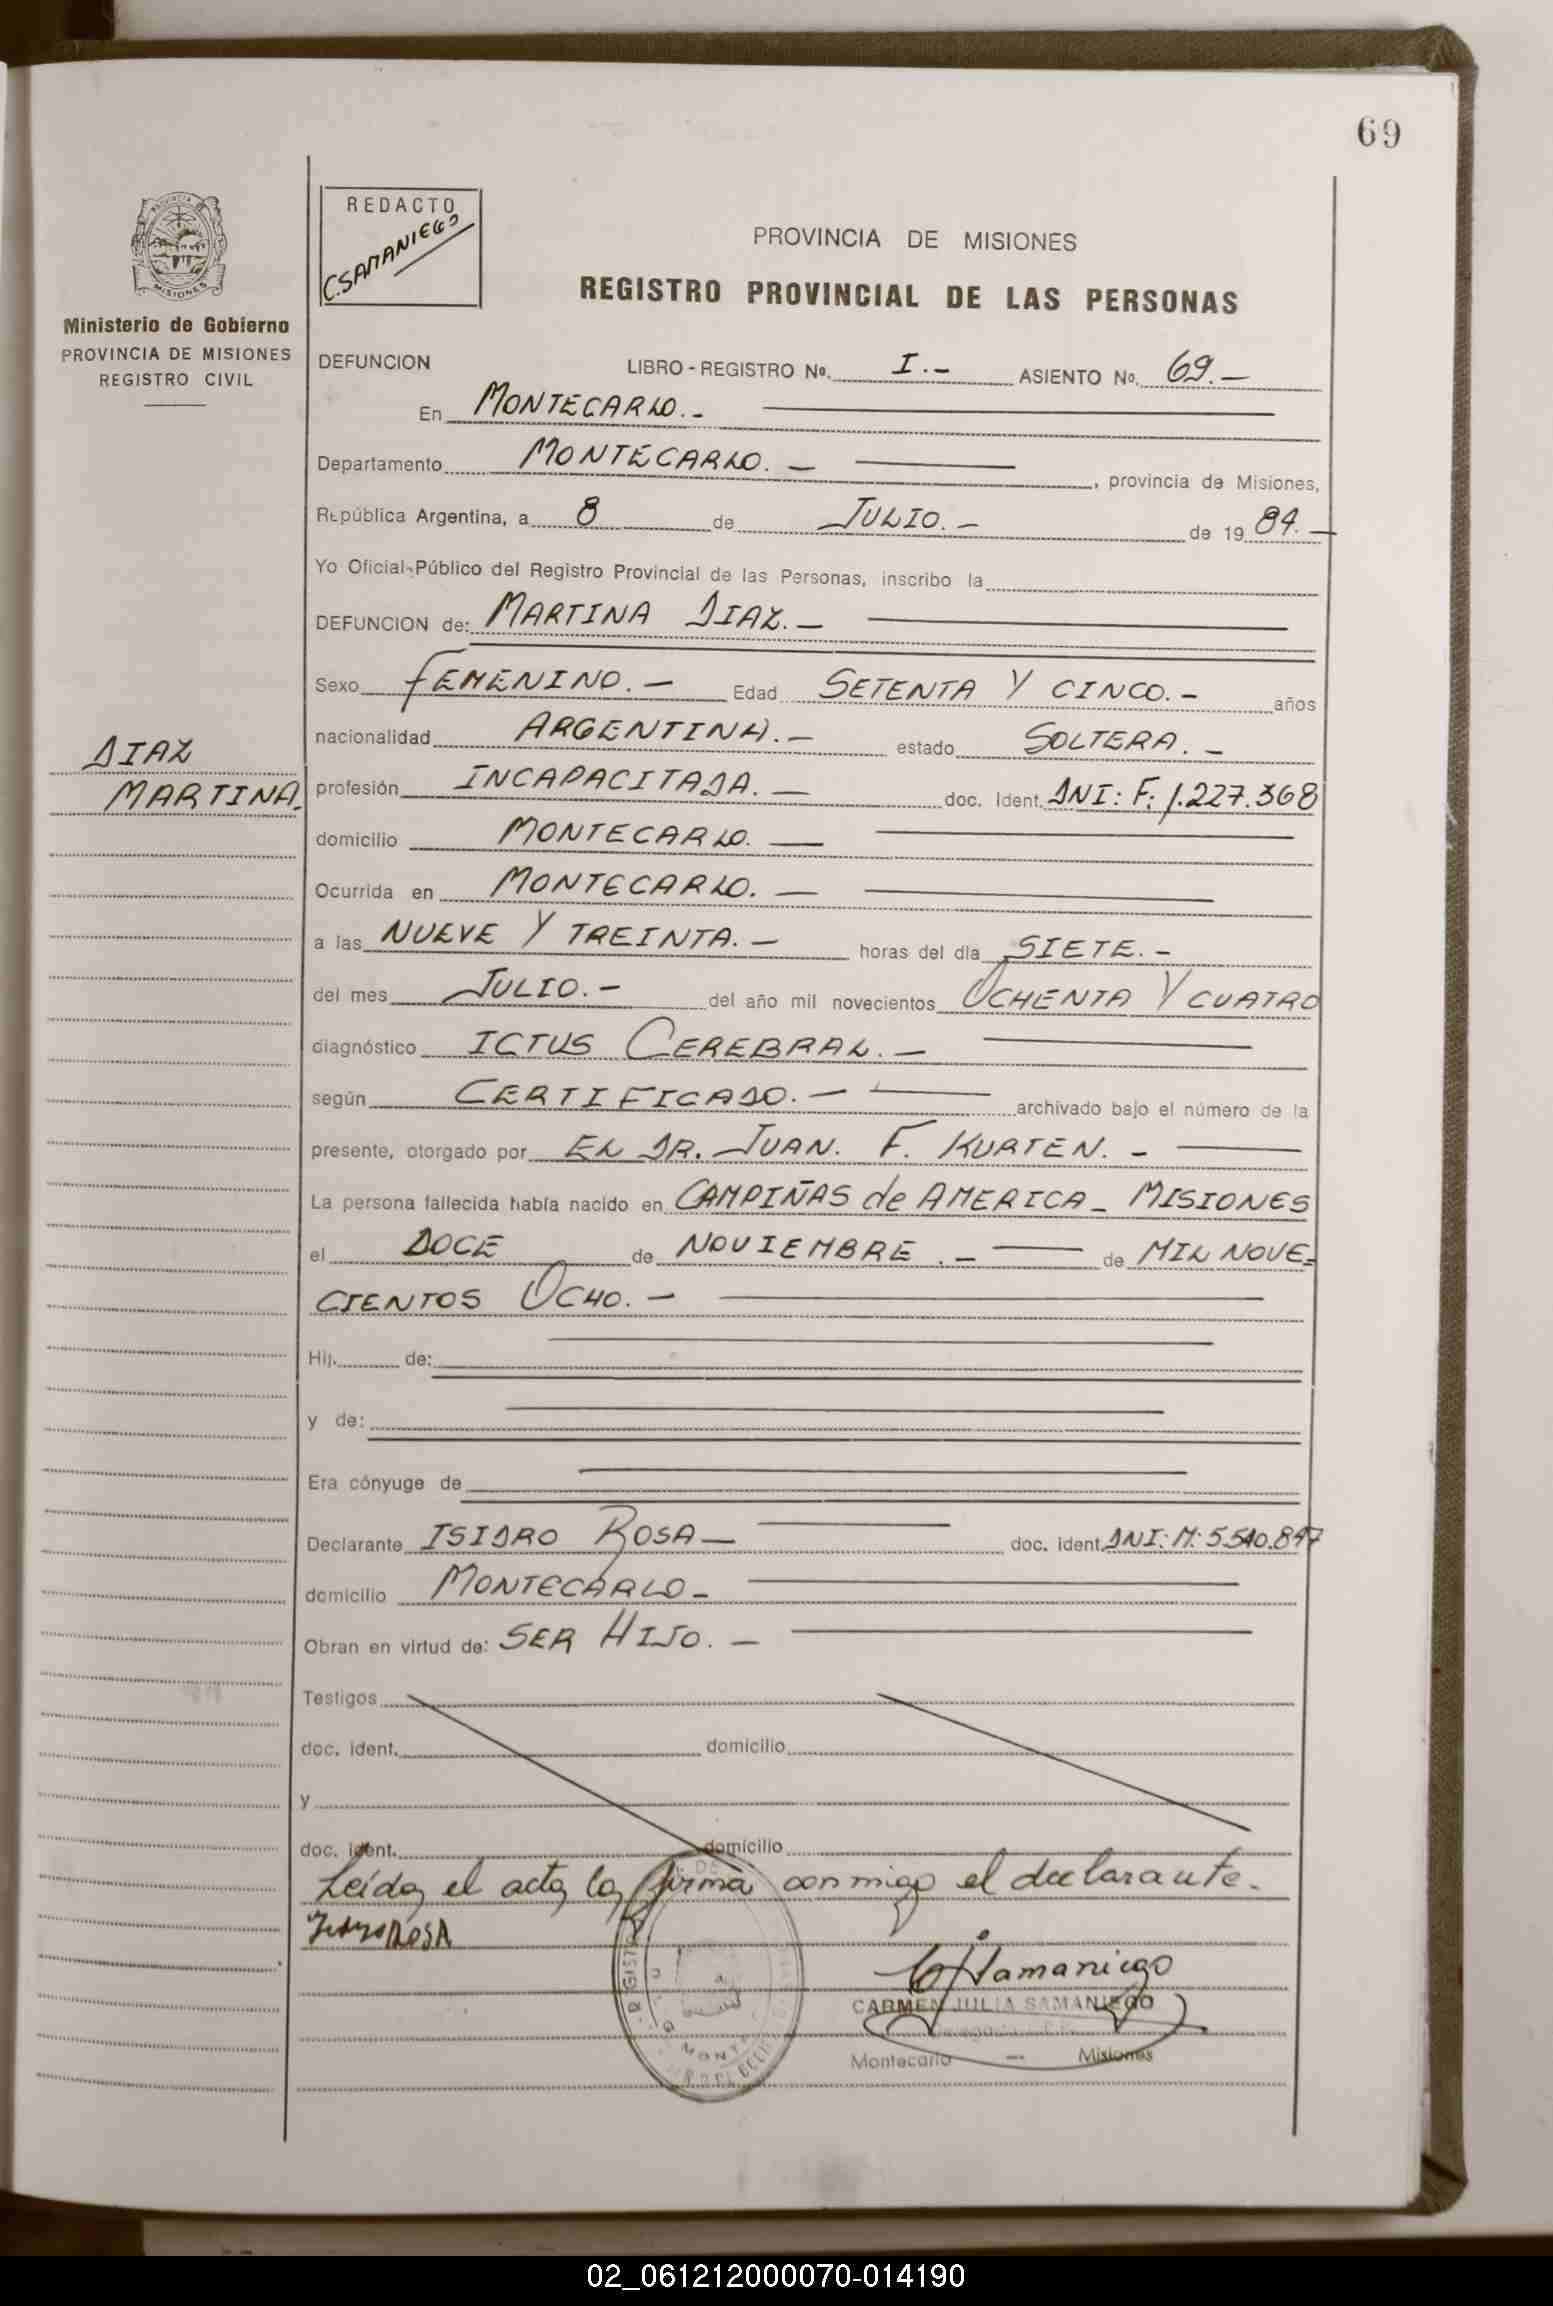 69
REDACTO
C.SAMANIEGO
PROVINCIA DE MISIONES
REGISTRO PROVINCIAL DE LAS PERSONAS
MISIONES
Ministerio de Gobierno
PROVINCIA DE MISIONES
REGISTRO CIVIL
DEFUNCION LIBRO-REGISTRO Nº. I.- ASIENTO Nº. 69.-
En MONTECARLO.-
Departamento MONTECARLO.- , provincia de Misiones,
República Argentina, a 8 de JULIO.- de 19 84.-
Yo Oficial Público del Registro Provincial de las Personas, inscribo la
DEFUNCION de: MARTINA DIAZ.-
Sexo FEMENINO.- Edad SETENTA Y CINCO.- años
nacionalidad ARGENTINA.- estado SOLTERA.-
DIAZ
MARTINA.
profesión INCAPACITADA.- doc. Ident. DNI: F: 1.227.368
domicilio MONTECARLO.-
Ocurrida en MONTECARLO.-
a las NUEVE Y TREINTA.- horas del día SIETE.-
del mes JULIO.- del año mil novecientos OCHENTA Y CUATRO
diagnóstico ICTUS CEREBRAL.-
según CERTIFICADO.- archivado bajo el número de la
presente, otorgado por EL DR. JUAN. F. KURTEN.-
La persona fallecida había nacido en CAMPIÑAS de AMERICA - MISIONES
el DOCE de NOVIEMBRE.- de MIL NOVE=
CIENTOS OCHO.-
Hij. de:
y de:
Era cónyuge de
Declarante ISIDRO ROSA- doc. ident. DNI: M: 5.540.847
domicilio MONTECARLO-
Obran en virtud de: SER HIJO.-
Testigos
doc. ident. domicilio
y
doc. ident. domicilio
Leída el acta la firma conmigo el declarante.
ROSA
CJSamaniego
CARMEN JULIA SAMANIEGO
Montecarlo - Misiones
02_061212000070-014190